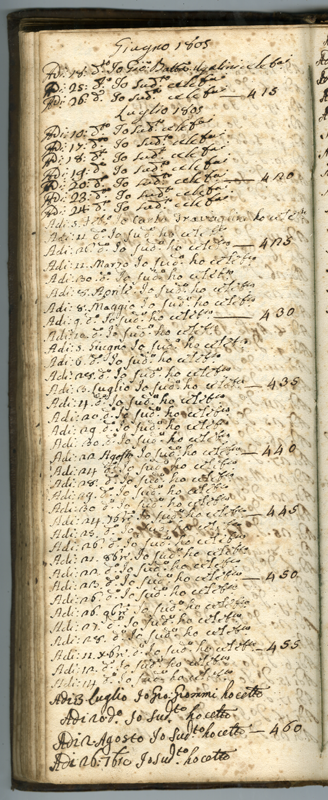 Giugno 1805
Adi: 18: d.to Io Gio: Batta celebrai
Adi: 25: d.to Io Sud.to celebrai
Adi: 26: d.to Io Sud.to celebrai — 415
Luglio 1805
Adi: 10: d.to Io Sud.to celebrai
Adi: 17: d.to Io Sud.to celebrai
Adi: 18: d.to Io Sud.to celebrai
Adi: 19: d.to Io Sud.to celebrai
Adi: 20: d.to Io Sud.to celebrai — 420
Adi: 23: d.to Io Sud.to celebrai
Adi: 24: d.to Io Sud.to celebrai
Adi: ho celeb.to
Adi: 11: d.o Io sud.o ho celeb.to
Adi: d.o Io sud.o ho celeb.to — 425
Adi: 11: Marzo Io sud.o ho celeb.to
Adi: d.o Io sud.o ho celeb.to
Adi: 8: Aprile Io sud.o ho celeb.to
Adi: 8: Maggio Io sud.o ho celeb.to
Adi: 9: d.o Io sud.o ho celeb.to — 430
Adi: d.o Io sud.o ho celeb.to
Adi: 5: Giugno Io sud.o ho celeb.to
Adi: 6: d.o Io sud.o ho celeb.to
Adi: 28: d.o Io sud.o ho celeb.to
Adi: Luglio Io sud.o ho celeb.to — 435
Adi: 14: d.o Io sud.o ho celeb.to
Adi: 20: d.o Io sud.o ho celeb.to
Adi: 29: d.o Io sud.o ho celeb.to
Adi: 30: d.o Io sud.o ho celeb.to
Adi: 22: Agosto Io sud.o ho celeb.to — 440
Adi: 24: d.o Io sud.o ho celeb.to
Adi: 28: d.o Io sud.o ho celeb.to
Adi: 29: d.o Io sud.o ho celeb.to
Adi: 30: d.o Io sud.o ho celeb.to
Adi: 24: 7bre Io sud.o ho celeb.to — 445
Adi: 25: d.o Io sud.o ho celeb.to
Adi: 26: d.o Io sud.o ho celeb.to
Adi: 21: 8br.e Io sud.o ho celeb.to
Adi: 22: d.o Io sud.o ho celeb.to
Adi: 23: d.o Io sud.o ho celeb.to — 450
Adi: 26: d.o Io sud.o ho celeb.to
Adi: 26: 9br.e Io sud.o ho celeb.to
Adi: 27: d.o Io sud.o ho celeb.to
Adi: 28: d.o Io sud.o ho celeb.to
Adi: 11: Xbr.e Io sud.o ho celeb.to — 455
Adi: 12: d.o Io sud.o ho celeb.to
Adi: 14: d.o Io sud.o ho celeb.to
Adi 3 luglio Io Gio: ho cel.to
Adi 20 d.o Io Sud.to ho cel.to
Adi 2 Agosto Io Sud.to ho cel.to — 460
Adi 26: Io Sud.to ho cel.to